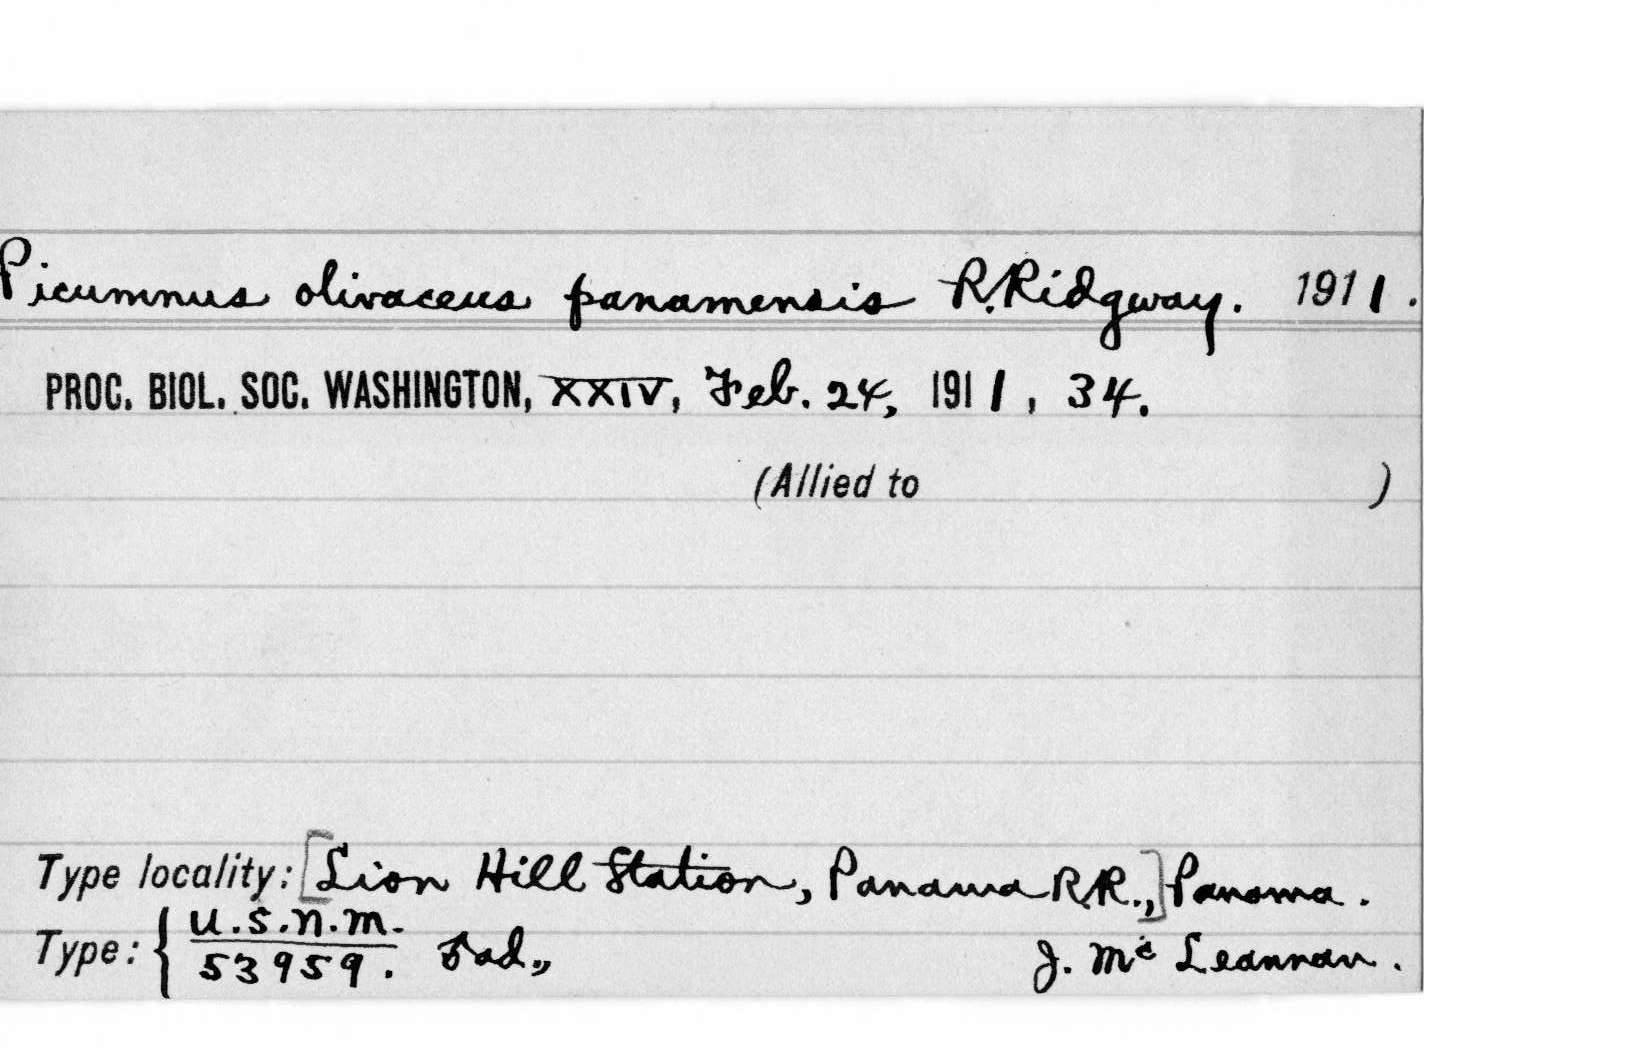 Picumnus olivaceus panamensis R. Ridgway. 1911.
PROC. BIOL. SOC. WASHINGTON, XXIV, Feb. 24, 1911, 34.
(Allied to )
Type locality: [Lion Hill Station, Panama R.R.,] Panama.
Type: { U.S.N.M. 53959. ad., J. Mc Leannan.